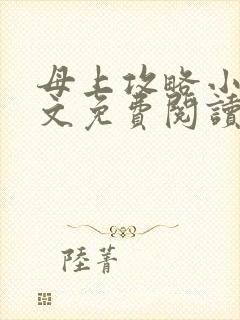 母上攻略小
文免費閱讀
陸菁